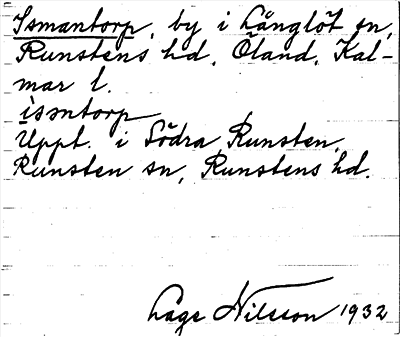 Ismantorp, by i Långlöt sn,
Runstens hd, Öland, Kal-
mar l.
ìsmtorp
Uppt. i Södra Runsten,
Runsten sn, Runstens hd.
Lage Nilsson 1932